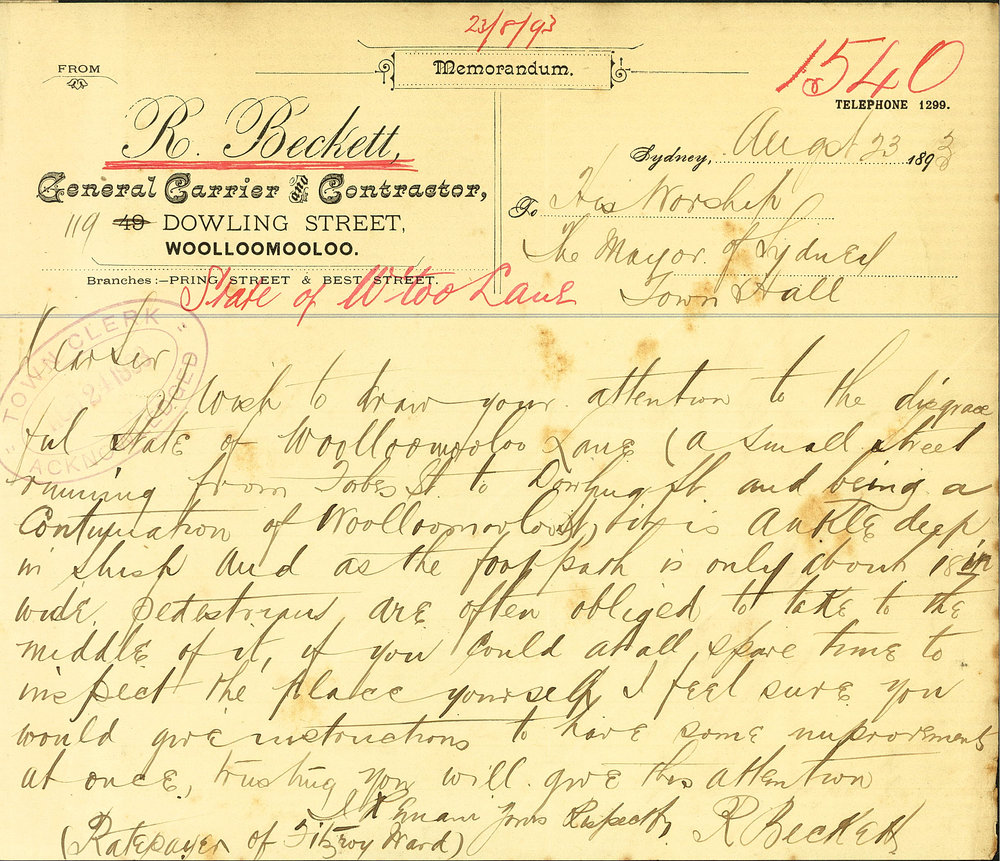 23/8/93
Memorandum.
FROM
1540
TELEPHONE 1299.
R. Beckett,
General Carrier and Contractor,
119 49 DOWLING STREET,
WOOLLOOMOOLOO.
Branches:—PRING STREET & BEST STREET.
Sydney, Augst 23 1893
To His Worship
The Mayor of Sydney
Town Hall
State of W'loo Lane
"TOWN CLERK"
24 1893
ACKNOWLEDGED
Dear Sir
I Wish to draw your attention to the disgrace
ful state of Woolloomooloo Lane (a small street
running from Forbes St. to Dowling St. and being a
Continuation of Woolloomooloo St), it is Ankle deep
in slush and as the footpath is only about 18in
wide pedestrians are often obliged to take to the
middle of it, if you could at all spare time to
inspect the place yourself I feel sure you
would give instructions to have some improvements
at once, trusting you will give this attention
I Remain yours Respectfy
R Beckett
(Ratepayer of Fitzroy Ward)